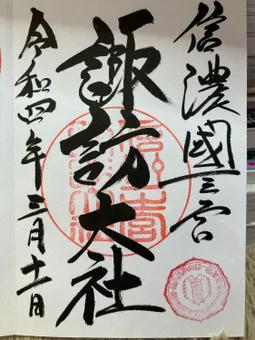 信濃國一之宮
諏訪大社
令和四年三月十一日